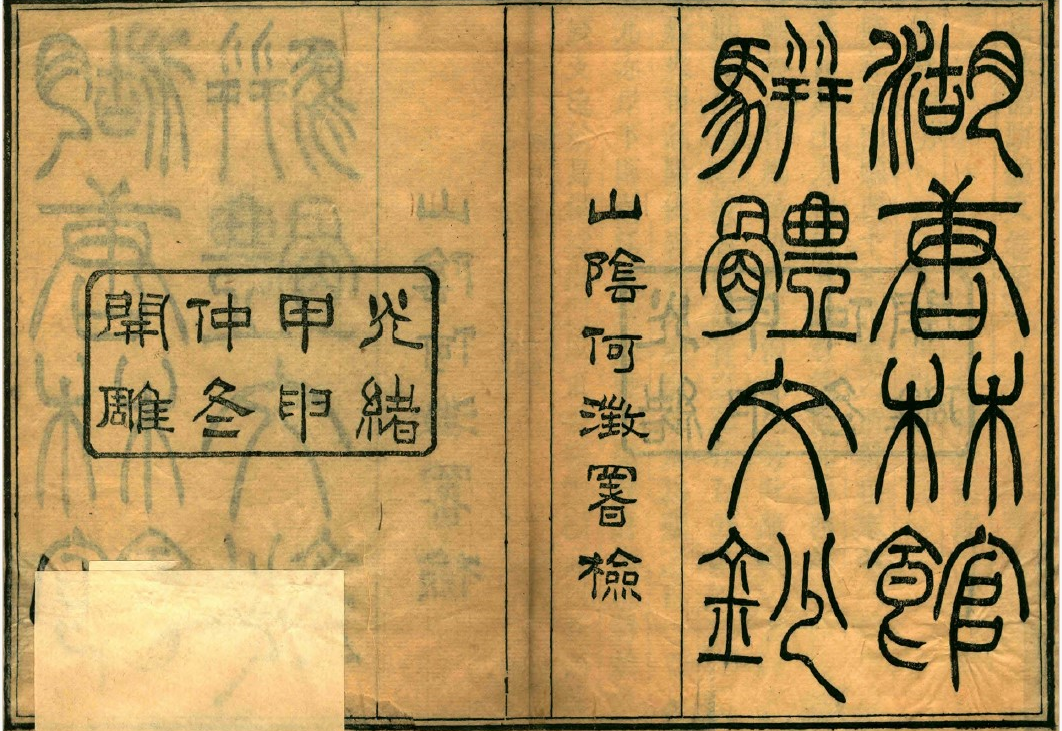 湖唐林館
駢體文鈔
山陰何澂署檢
光緒
甲申
仲冬
開雕